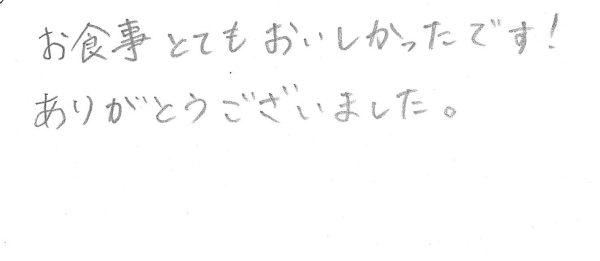 お食事とてもおいしかったです!
ありがとうございました。